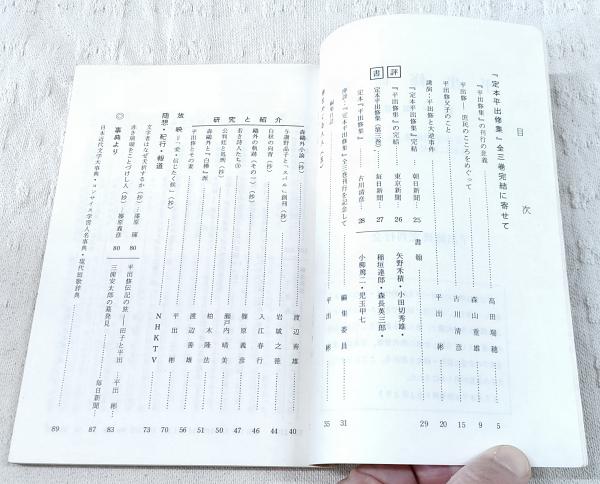 目次
『定本平出修集』全三巻完結に寄せて
『平出修集』の刊行の意義……高田瑞穂……5
平出修―庶民のこころをめぐって……森山重雄……9
平出修父子のこと……古川清彦……15
講演:平出修と大逆事件……平出彬……20
書評
『定本平出修集』完結 朝日新聞…25
『平出修集』の完結 東京新聞…26
定本平出修集(第三巻) 毎日新聞…27
定本『平出修集』 古川清彦…28
書翰……29
矢野禾積・小田切秀雄・
稲垣達郎・森長英三郎・
小柳篤二・児玉甲七
座談:『定本平出修集』全三巻刊行を記念して……編集委員……31
平出彬……35
研究と紹介
森鷗外小論(抄)……渡辺善雄……40
与謝野晶子と「スバル」創刊(抄)……岩城之徳……44
白秋の向背(抄)……入江春行……46
鷗外の軌跡(その一)(抄)……篠原義彦……47
若き詩人たち⑤……瀬戸内晴美……49
公判廷と処刑(抄)……柏木隆法……50
森鷗外と『白樺』派……渡辺善雄……51
平出修とその妻……平出彬……56
放映
「愛・信じたく候」(抄)……NHKTV……70
随想・紀行・報道……73
文学者はなぜ夭折するか(抄)…篠原 80
赤き硝確をことづけし人(抄)…篠原義彦 80
平出修伝記の旅―田子と平出…平出彬…83
三浦安太郎の墓発見……毎日新聞…87
◎事典より
日本近代文学大事典・コンサイス学芸人名事典・現代短歌辞典……89